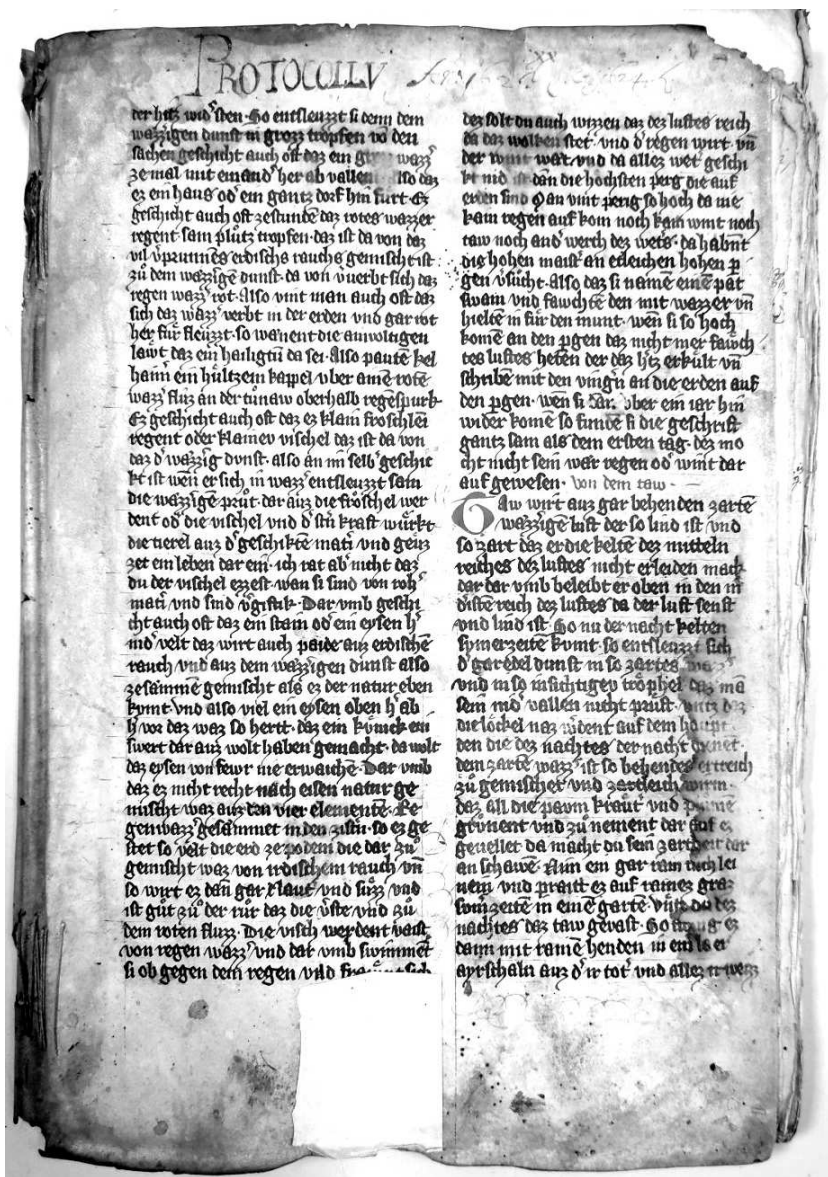 PROTOCOLLV
der hitz wid'sten. So entsleuzzt si denn dem
wazzigen dunst in grozz tropfen von den
sachen geschicht auch oft daz ein wazz'
ze mal mit einand' her ab vallen also daz
ez ein haus od' ein gantz dorf hin furt. Ez
geschicht auch oft ze stunden daz rotes wazzer
regent sam plutz tropfen. daz ist da von daz
vil v'prunnes erdischs rauchs gemischt ist
zů dem wazzigen dunst. da von v'verbt sich daz
regen wazz' rot. Also vint man auch oft daz
sich daz wazz' verbt in der erden vnd gar rot
her für fleuzzt. so wænent die ainvoltigen
læwt daz ein hailigtū da sei. Also pautē kel
haim ein hültzem kappel vber ainē rotē
wazz' fluz an der tůnaw oberhalb regēspurk.
Ez geschicht auch oft daz ez klain froschlei
regent oder klainev vischel daz ist da von
daz d' wazzig dvnst. also an im selb' geschic
kt ist wen er sich in wazz' entsleuzzt sam
die wazzigē prüt. dar auz die fröschel wer
dent od' die vischel vnd d' st'n kraft würkt
die tierel auz d' geschiktē mati vnd geuz
zet ein leben dar ein. ich rat ab' nicht daz
du der vischel ezzest wan si sind von roh'
mati vnd sind v'giftik. Dar vmb geschi
cht auch oft daz ein stain od' ein eysen h'
nid' velt daz wirt auch paide auz erdischē
rauch vnd auz dem wazzigen dunst also
zesāmmē gemischt als ez der natur eben
kvmt. vnd also viel ein eysen oben h' ab
h' vor daz waz so hertt. daz ein kvnick ein
swert dar auz wolt haben gemacht. da wolt
daz eysen von fewr nie erwaichē. Dar vmb
daz ez nicht recht nach eisen natur ge
mischt waz auz den vier elementē. Re
genwazz' gesāmmet in den zist'n. so ez ge
stet so velt die erd ze podem die dar zů
gemischt waz von irdischem rauch vn̄
so wirt ez dañ gar klaut vnd sůzz vnd
ist gůt zů der růr daz die v'ste vnd zů
dem roten fluzz. Die visch werdent vaist
von regen wazz' vnd dar vmb swimmēt
si ob gegen dem regen vnd
dez solt du auch wizzen daz dez luftes reich
da daz wolken stet. vnd d' regen wirt vn̄
der wint wæt vnd da allez wet' geschi
kt nid' ist dan die hochsten perg die auf
erden sind Man vint perig so hoch da nie
kain regen auf kom noch kain wint noch
taw noch and' werch dez wet's. da habnt
die hohen maist' an etleichen hohen p'
gen v'sůcht. Also daz si namē einē pat
swam vnd fawchtē den mit wazzer vn̄
hieltē in für den munt. wen si so hoch
komē an den p'gen daz nicht mer fawch
tes luftes heten der daz h'tz erkůlt vn̄
schribē mit den ving'n an die erden auf
den p'gen. wen si dar vber ein iar hin
wider komē so fundē si die geschrift
gantz sam als dem ersten tag. dez mo
cht nicht sein wær regen od' wint dar
auf gewesen. von dem taw.
Taw wirt auz gar behenden zartē
wazzigē luft der so lind ist vnd
so zart daz er die keltē dez mitteln
reiches dez luftes nicht erleiden mack
dar dar vmb beleibt er oben in den ni
d'istē reich dez luftes da der luft senft
vnd lind ist. So nu der nacht kelten
svmerzeitē kvmt. so entsleuzzt sich
d' gar edel dunst in so zartes
vnd in so insichtigev tröphel daz mā
sein nid' vallen nicht prüft. vntz daz
die löckel naz w'dent auf dem haupt
den die dez nachtes der nacht
dem zartē wazz' ist so behendes ertreich
zů gemischet vnd zærtleich
daz all die pavm kraut vnd
grůnent vnd zů nement dar auf ez
geuellet da macht du sein zartheit dar
an schawē. Nim ein gar rain tůch lei
nein vnd prait ez auf raines graz
som'zeitē in einē gartē. du dez
nachtes daz taw gevast. So ez
dann mit rainē henden in ein læ
ayrschaln auz d' ir tot' vnd allez ir weizz